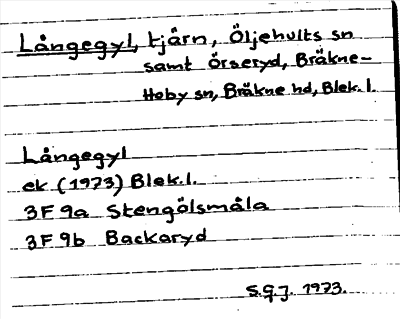 Långegyl, tjärn, Öljehults sn
samt Örseryd, Bräkne-
Hoby sn, Bräkne hd, Blek. l.
Långegyl
ek (1973) Blek. l.
3F 9a Stengölsmåla
3F 9b Backaryd
S.G.J. 1973.